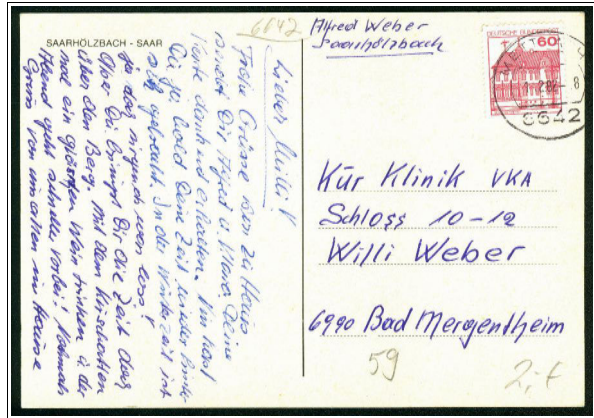 SAARHÖLZBACH - SAAR
6642
Alfred Weber
Saarhölzbach
DEUTSCHE BUNDESPOST
60
82 - 8
6642
Lieber Willi!
Frohe Grüsse von zu Haus
sendet Dir Alfred u. Maria. Deine
Karte dankend erhalten. Nun hast
Du ja bald Deine Zeit wieder
In der Winterzeit ist
ja das nirgends was los!
Aber Du bringst Dir die Zeit
über den Berg. Mit dem
mal ein Gläschen Wein trinken u. der
Abend geht schneller vorbei! Nochmals
Gruss von uns allen im Hause
Kur Klinik VKA
Schloss 10-12
Willi Weber
6990 Bad Mergentheim
59
2,-